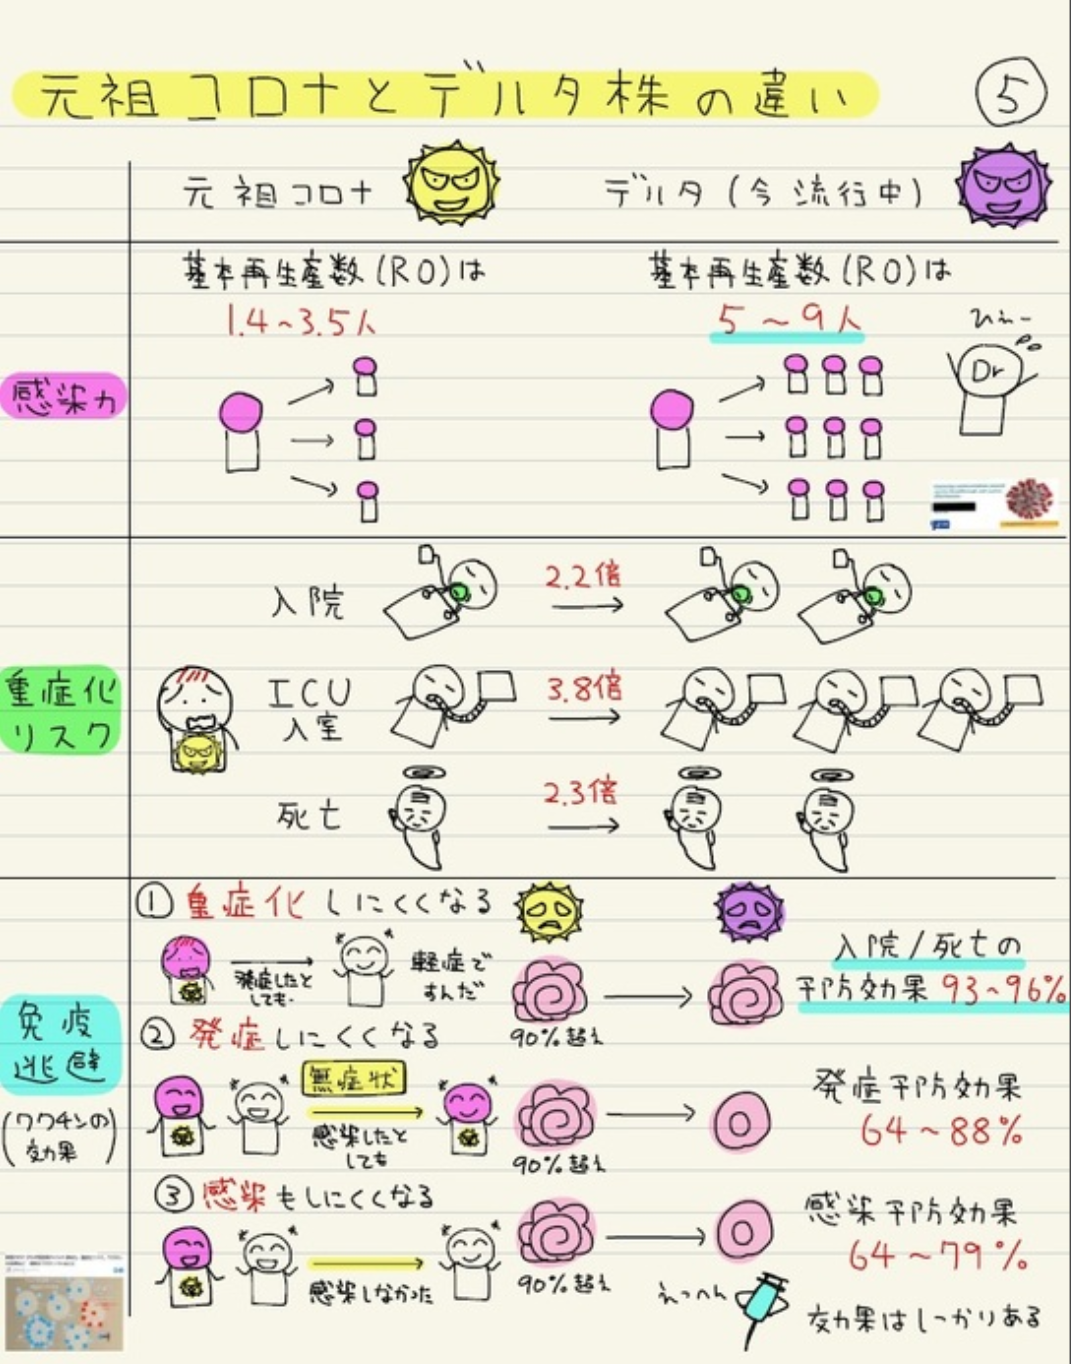 元祖コロナとデルタ株の違い
⑤
元祖コロナ
デルタ(今流行中)
感染力
基本再生産数(R0)は
1.4~3.5人
基本再生産数(R0)は
5~9人
ひえー
Dr
重症化
リスク
入院
2.2倍
ICU
入室
3.8倍
死亡
2.3倍
免疫
逃避
(ワクチンの
効果)
① 重症化しにくくなる
発症したと
しても・
軽症で
すんだ
90%超え
入院/死亡の
予防効果 93~96%
② 発症しにくくなる
無症状
感染したと
しても
90%超え
発症予防効果
64~88%
③ 感染もしにくくなる
感染しなかった
90%超え
感染予防効果
64~79%
えっへん
効果はしっかりある